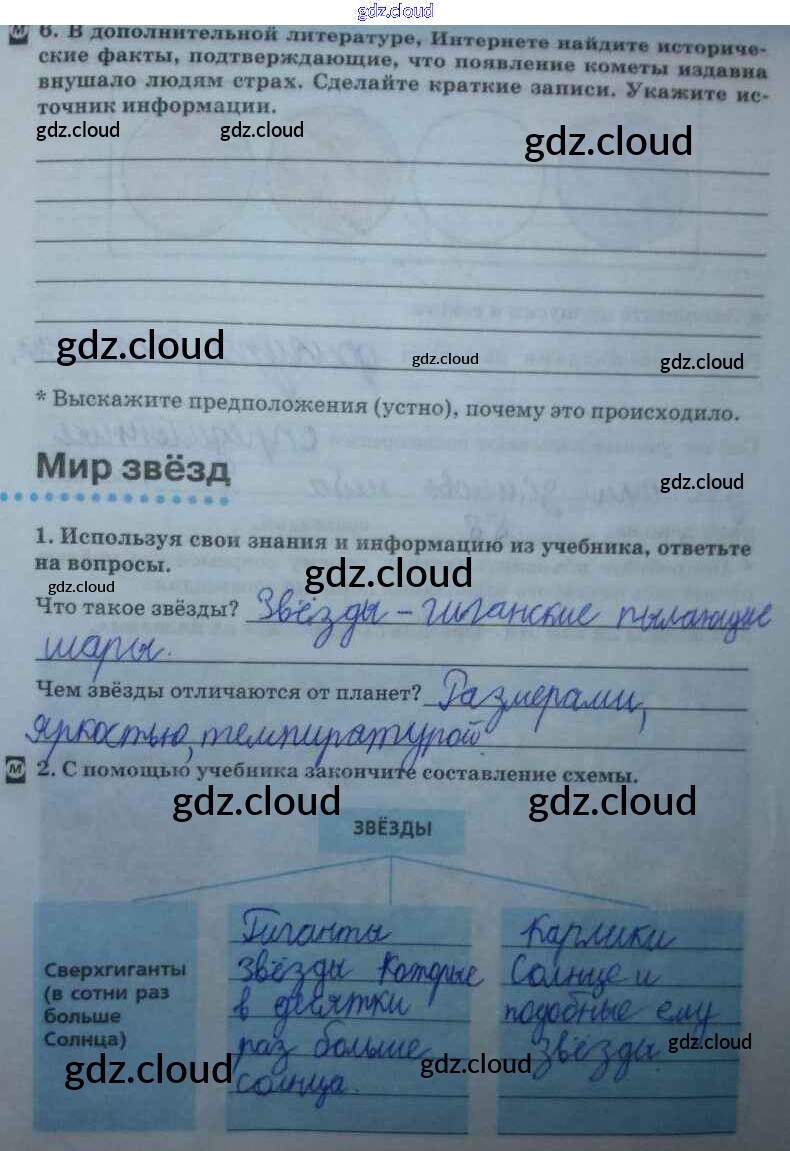 gdz.cloud
6. В дополнительной литературе, Интернете найдите историче-
ские факты, подтверждающие, что появление кометы издавна
внушало людям страх. Сделайте краткие записи. Укажите ис-
точник информации.
gdz.cloud gdz.cloud gdz.cloud
gdz.cloud gdz.cloud gdz.cloud
* Выскажите предположения (устно), почему это происходило.
Мир звёзд
gdz.cloud
1. Используя свои знания и информацию из учебника, ответьте
на вопросы.
gdz.cloud gdz.cloud
Что такое звёзды? Звёзды – гиганские пылающие
шары.
Чем звёзды отличаются от планет? Размерами,
яркостью, температурой
М 2. С помощью учебника закончите составление схемы.
gdz.cloud gdz.cloud
ЗВЁЗДЫ
Сверхгиганты
(в сотни раз
больше
Солнца)
Гиганты
звёзды которые
в десятки
раз больше
солнца.
Карлики
Солнце и
подобные ему
звёзды.
gdz.cloud
gdz.cloud gdz.cloud